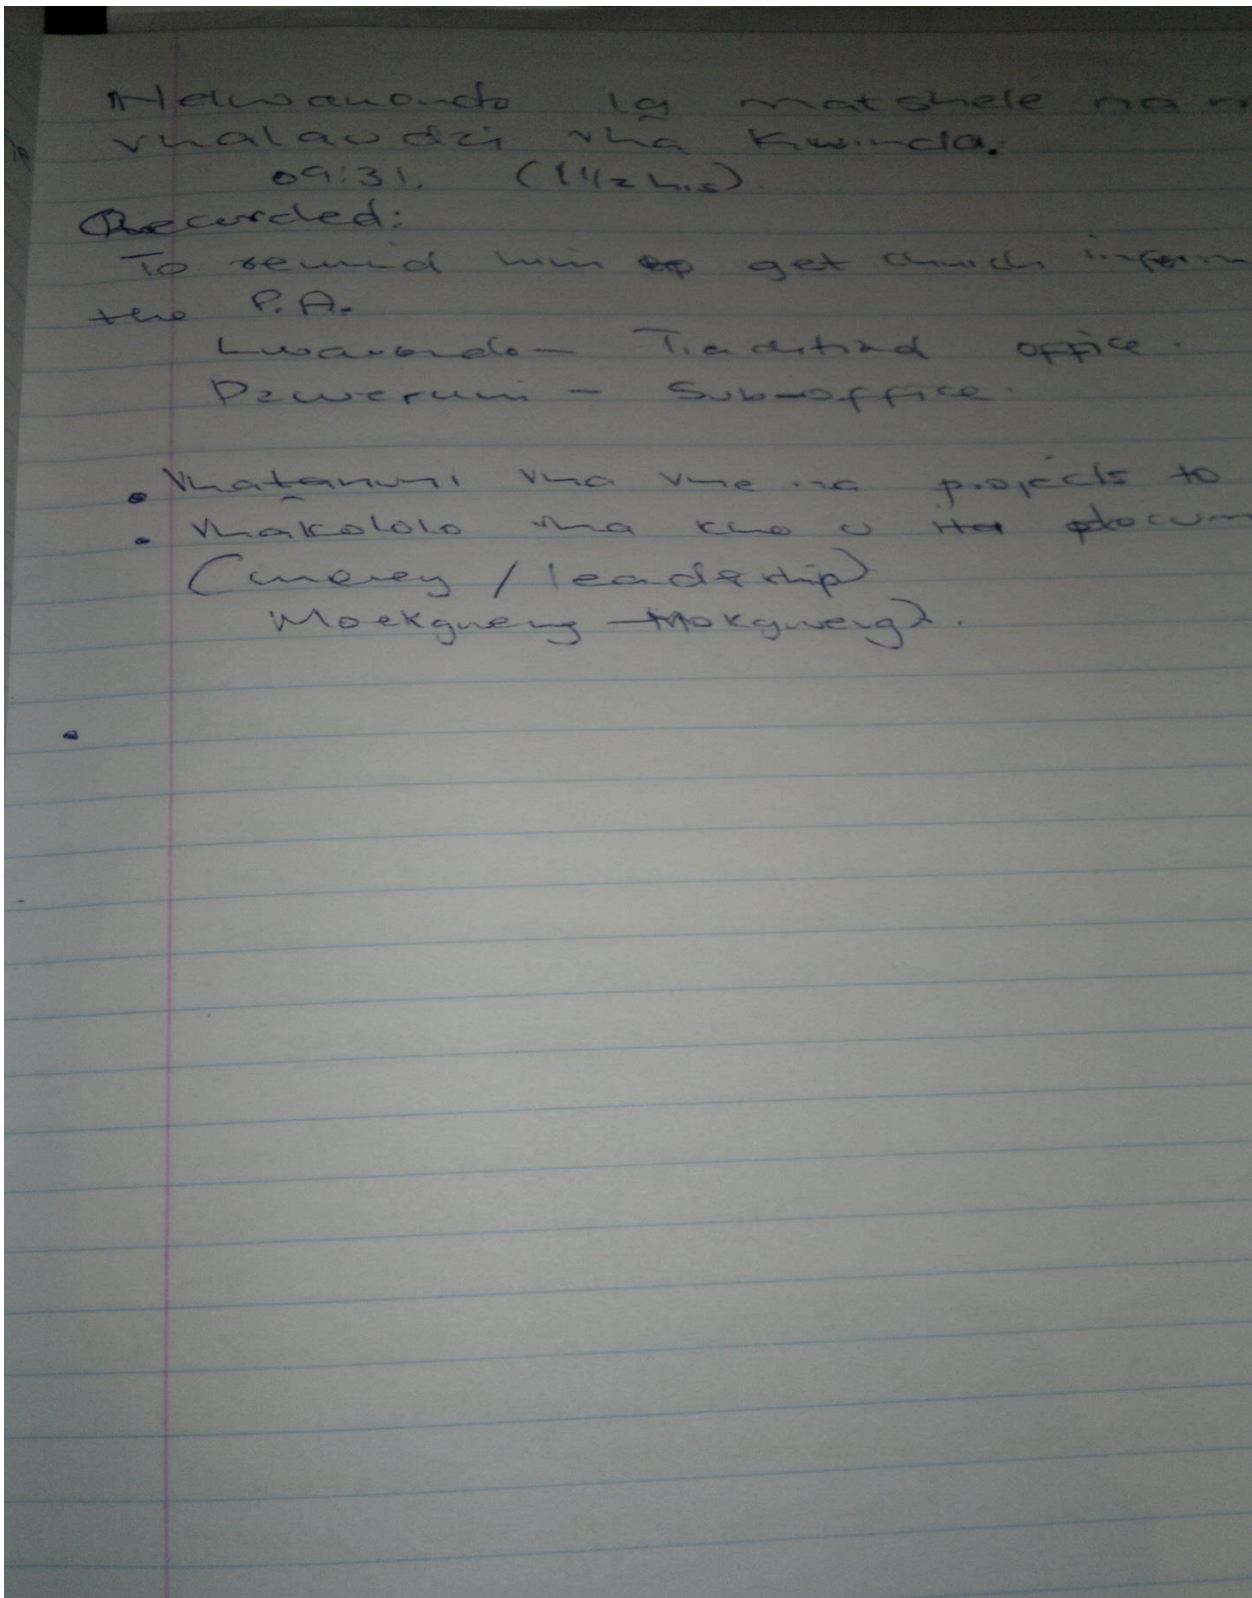 Nelwamondo 19 matshele na
vhalaudzi vha Kwinda.
09:31. (1 1/2 hrs).
Recorded:
To remind him get church inform
the P.A.
Lwamondo - Traditional office.
Dzwerani - Sub-office.
• Vhaṱanuni vha vhe na projects to
• Vhakololo vha kho u docum
(money / leadership)
Moekgweng Mokgweng).
•